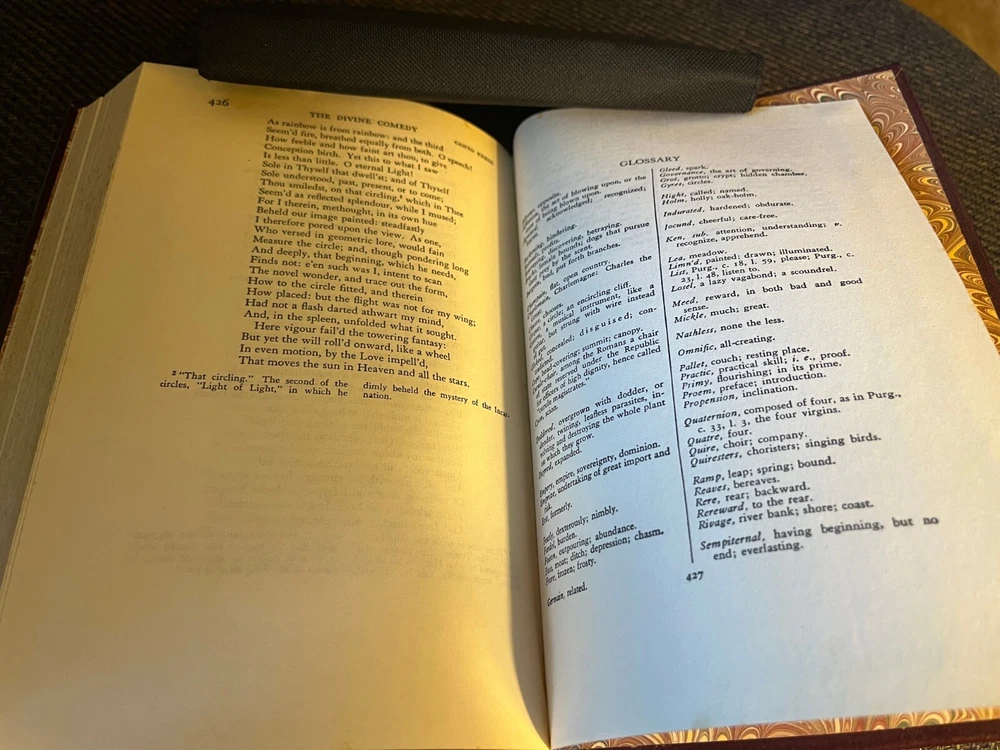 426
THE DIVINE COMEDY
As rainbow is from rainbow: and the third
Seem'd fire, breathed equally from both. O speech!
How feeble and how faint art thou, to give
Conception birth. Yet this to what I saw
Is less than little. O eternal Light!
Sole in Thyself that dwell'st; and of Thyself
Sole understood, past, present, or to come;
Thou smiledst, on that circling,² which in Thee
Seem'd as reflected splendour, while I mused;
For I therein, methought, in its own hue
Beheld our image painted: steadfastly
I therefore pored upon the view. As one,
Who versed in geometric lore, would fain
Measure the circle; and, though pondering long
And deeply, that beginning, which he needs,
Finds not: e'en such was I, intent to scan
The novel wonder, and trace out the form,
How to the circle fitted, and therein
How placed: but the flight was not for my wing;
Had not a flash darted athwart my mind,
And, in the spleen, unfolded what it sought.
Here vigour fail'd the towering fantasy:
But yet the will roll'd onward, like a wheel
In even motion, by the Love impell'd,
That moves the sun in Heaven and all the stars.
² "That circling." The second of the
circles, "Light of Light," in which he
dimly beheld the mystery of the Incar-
nation.
GLOSSARY
the art of blowing upon, or the
being blown upon.
acknowledged; recognized;
hindering.
discovering, betraying.
hounds; dogs that pursue
by the scent.
bud, put forth branches.
flat, open country.
Charlemagne; Charles the
a circle; an encircling cliff.
a musical instrument, like a
but strung with wire instead
concealed; disguised; con-
head-covering; summit; canopy.
among the Romans a chair
of state reserved under the Republic
to officers of high dignity, hence called
"curule magistrates."
scion.
overgrown with dodder, or
slender, twining, leafless parasites, in-
volving and destroying the whole plant
on which they grow.
expanded.
empire, sovereignty, dominion.
undertaking of great import and
risk.
formerly.
dexterously; nimbly.
burden.
outpouring; abundance.
moat; ditch; depression; chasm.
frozen; frosty.
German, related.
Gleed, spark.
Governance, the art of governing.
Grot, grotto; crypt; hidden chamber.
Gyres, circles.
Hight, called; named.
Holm, holly; oak-holm.
Indurated, hardened; obdurate.
Jocund, cheerful; care-free.
Ken, sub. attention, understanding; v.
recognize, apprehend.
Lea, meadow.
Limn'd, painted; drawn; illuminated.
List, Purg., c. 18, l. 59, please; Purg., c.
23, l. 48, listen to.
Losel, a lazy vagabond; a scoundrel.
Meed, reward, in both bad and good
sense.
Mickle, much; great.
Nathless, none the less.
Omnific, all-creating.
Pallet, couch; resting place.
Practic, practical skill; i. e., proof.
Primy, flourishing; in its prime.
Proem, preface; introduction.
Propension, inclination.
Quaternion, composed of four, as in Purg.,
c. 33, l. 3, the four virgins.
Quatre, four.
Quire, choir; company.
Quiresters, choristers; singing birds.
Ramp, leap; spring; bound.
Reaves, bereaves.
Rere, rear; backward.
Rereward, to the rear.
Rivage, river bank; shore; coast.
Sempiternal, having beginning, but no
end; everlasting.
427